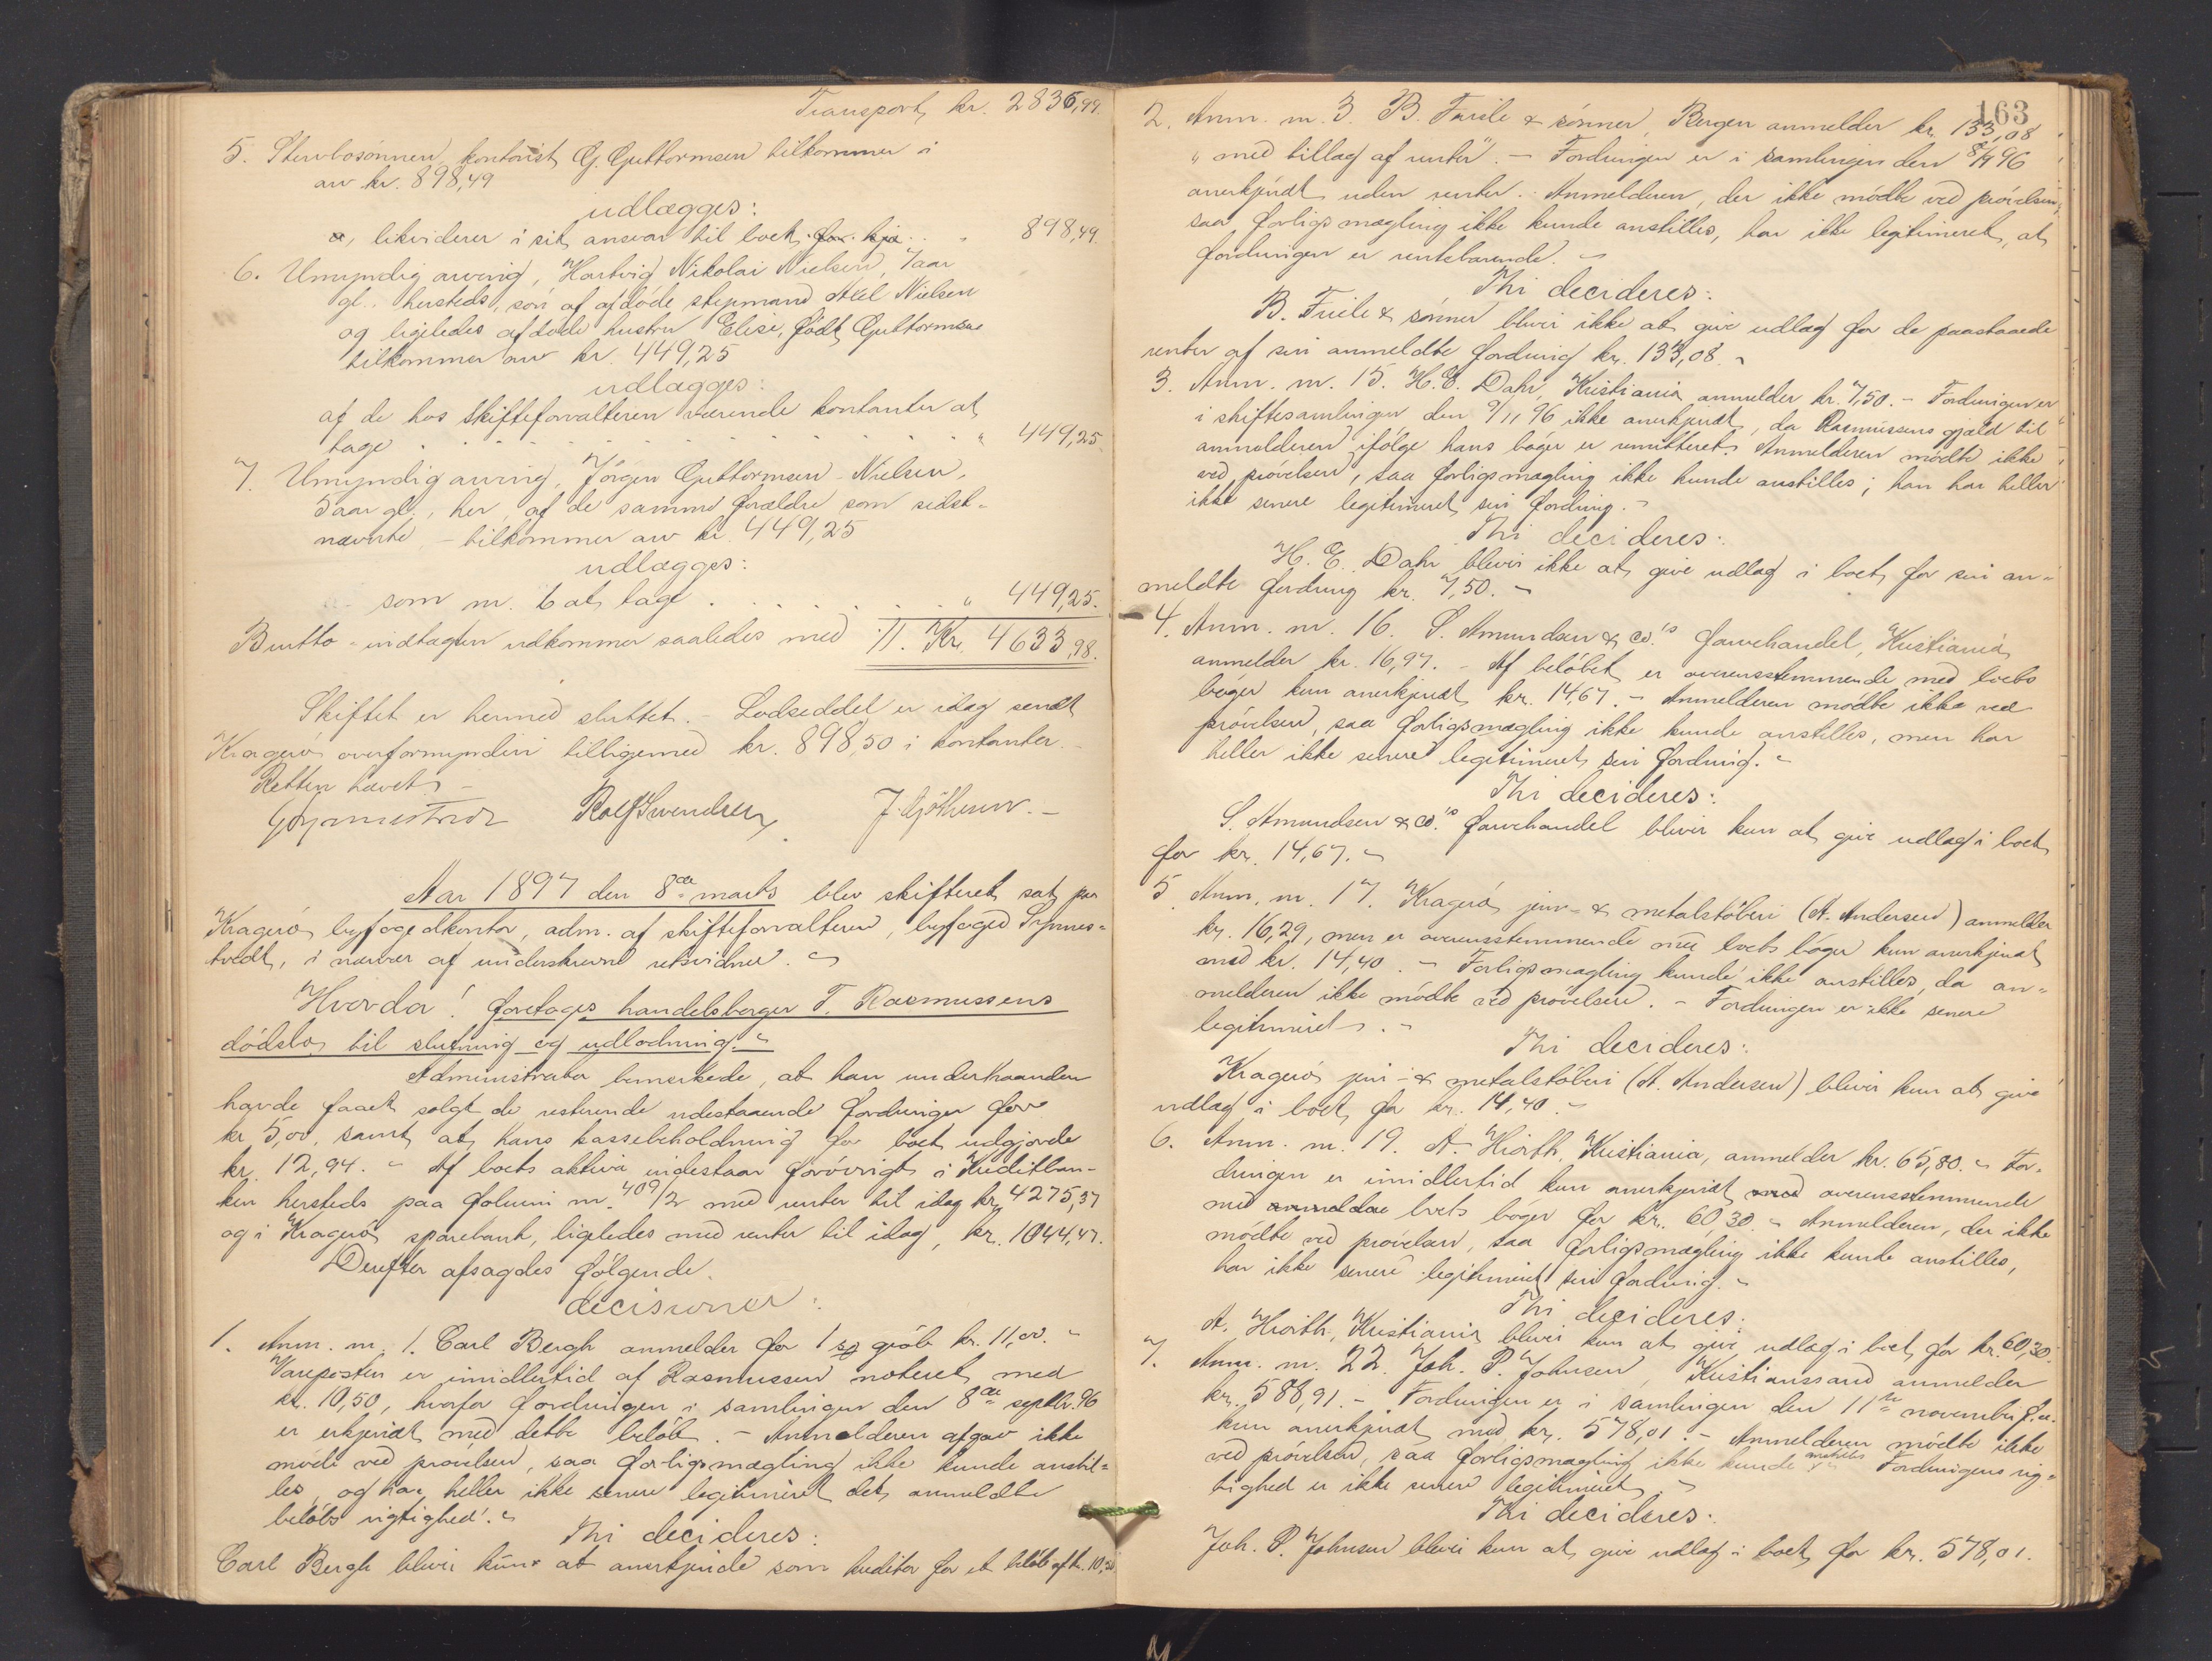 Transport, kr. 2836,99.
5. Stervbosønnen, kontorist G. Guttormsen tilkommer i
arv kr. 898,49
udlægges:
a, likviderer i sit ansvar til boet for kja . . " 898,49.
6. Umyndig arving, Hartvig Nikolai Nielsen, 7 aar
gl. hersteds, søn af afdøde styrmand Axel Nielsen
og ligeledes afdøde hustru Elise, født Guttormsen
tilkommer arv kr. 449,25
udlægges:
af de hos skifteforvalteren værende kontanter at
tage . . . . . . . . . . . . . " 449,25
7. Umyndig arving, Jørgen Guttormsen Nielsen,
5 aar gl., her, af de samme forældre som sidst-
nævnte, – tilkommer arv kr. 449,25
udlægges:
som nr. 6 at tage . . . . . . . " 449,25.
Brutto-indtægten udkommer saaledes med :||. Kr. 4633,98.
Skiftet er hermed sluttet. – Lodseddel er idag sendt
Kragerø overformynderi tilligemed kr. 898,50 i kontanter. –
Retten hævet. –
Rolf Svendsen
Aar 1897 den 8de marts blev skifteret sat paa
Kragerø byfogedkontor, adm. af skifteforvalteren, byfoged
i nærvær af underskrevne retsvidner.
Hvorda! foretages handelsborger T. Rasmussens
dødsbo til slutning og udlodning.
Administrator bemerkede, at han underhaanden
havde faaet solgt de resterende udestaaende fordringer for
kr. 5,00, samt at hans kassebeholdning for boet udgjorde
kr. 12,94. – Af boets aktiva indestaar forøvrigt i Kreditban-
ken hersteds paa folium nr. 409/2 med renter til idag kr. 4275,37
og i Kragerø sparebank, ligeledes med renter til idag, kr. 1044,47.
Derefter afsagdes følgende
decisioner:
1. Anm. nr. 1. Carl Bergh anmelder for 1 grøb kr. 11,00. –
Vareposten er imidlertid af Rasmussen noteret med
kr. 10,50, hvorfor fordringen i samlingen den 8de septbr. 96
er erkjendt med dette beløb. – Anmelderen afgav ikke
møde ved prøvelsen, saa forligsmægling ikke kunde anstil-
les, og har heller ikke senere legitimeret det anmeldte
beløbs rigtighed.
Thi decideres:
Carl Bergh bliver kun at anerkjende som kreditor for et beløb af kr. 10,50
163
2. Anm. nr. 3. B. Friele & sønner, Bergen anmelder kr. 133,08
"med tillæg af renter". – Fordringen er i samlingen den 8/9 96
anerkjendt uden renter. – Anmelderen, der ikke mødte ved prøvelsen,
saa forligsmægling ikke kunde anstilles, har ikke legitimeret, at
fordringen er rentebærende. –
Thi decideres:
B. Friele & sønner bliver ikke at give udlæg for de paastaaede
renter af sin anmeldte fordring kr. 133,08.
3. Anm. nr. 15. H. E. Dahr, Kristiania, anmelder kr. 7,50. – Fordringen er
i skiftesamlingen den 9/11 96 ikke anerkjendt, da Rasmussens gjæld til
anmelderen ifølge hans bøger er remitteret. Anmelderen mødte ikke
ved prøvelsen, saa forligsmægling ikke kunde anstilles; han har heller
ikke senere legitimeret sin fordring. –
Thi decideres:
H. E. Dahr bliver ikke at give udlæg i boet for sin an-
meldte fordring kr. 7,50. –
4. Anm. nr. 16. S. Amundsen & co's farvehandel, Kristiania,
anmelder kr. 16,97. – Af beløbet er overensstemmende med boets
bøger kun anerkjendt kr. 14,67. – Anmelderen mødte ikke ved
prøvelsen, saa forligsmægling ikke kunde anstilles, men har
heller ikke senere legitimeret sin fordring. –
Thi decideres:
S. Amundsen & co's farvehandel bliver kun at give udlæg i boet
for kr. 14,67. –
5. Anm. nr. 17. Kragerø jern- & metalstøberi (A. Andersen) anmelder
kr. 16,29, men er overensstemmende med boets bøger kun anerkjendt
med kr. 14,40. – Forligsmægling kunde ikke anstilles, da an-
melderen ikke mødte ved prøvelsen. – Fordringen er ikke senere
legitimeret. –
Thi decideres:
Kragerø jern- & metalstøberi (A. Andersen) bliver kun at give
udlæg i boet for kr. 14,40. –
6. Anm. nr. 19. A. Hiorth, Kristiania, anmelder kr. 65,80. – For-
dringen er imidlertid kun anerkjendt med overensstemmende
med anmeldae boets bøger for kr. 60,30. – Anmelderen, der ikke
mødte ved prøvelsen, saa forligsmægling ikke kunde anstilles,
har ikke senere legitimeret sin fordring. –
Thi decideres:
A. Hiorth, Kristiania bliver kun at give udlæg i boet for kr. 60,30.
7. Anm. nr. 22. Joh. P. Johnsen, Kristianssand anmelder
kr. 588,91. – Fordringen er i samlingen den 11te november f. a.
kun anerkjendt med kr. 578,01. – Anmelderen mødte ikke
ved prøvelsen, saa forligsmægling ikke kunde anstilles Fordringens rig-
tighed er ikke senere legitimeret. –
Thi decideres:
Joh. P. Johnsen bliver kun at give udlæg i boet for kr. 578,01.